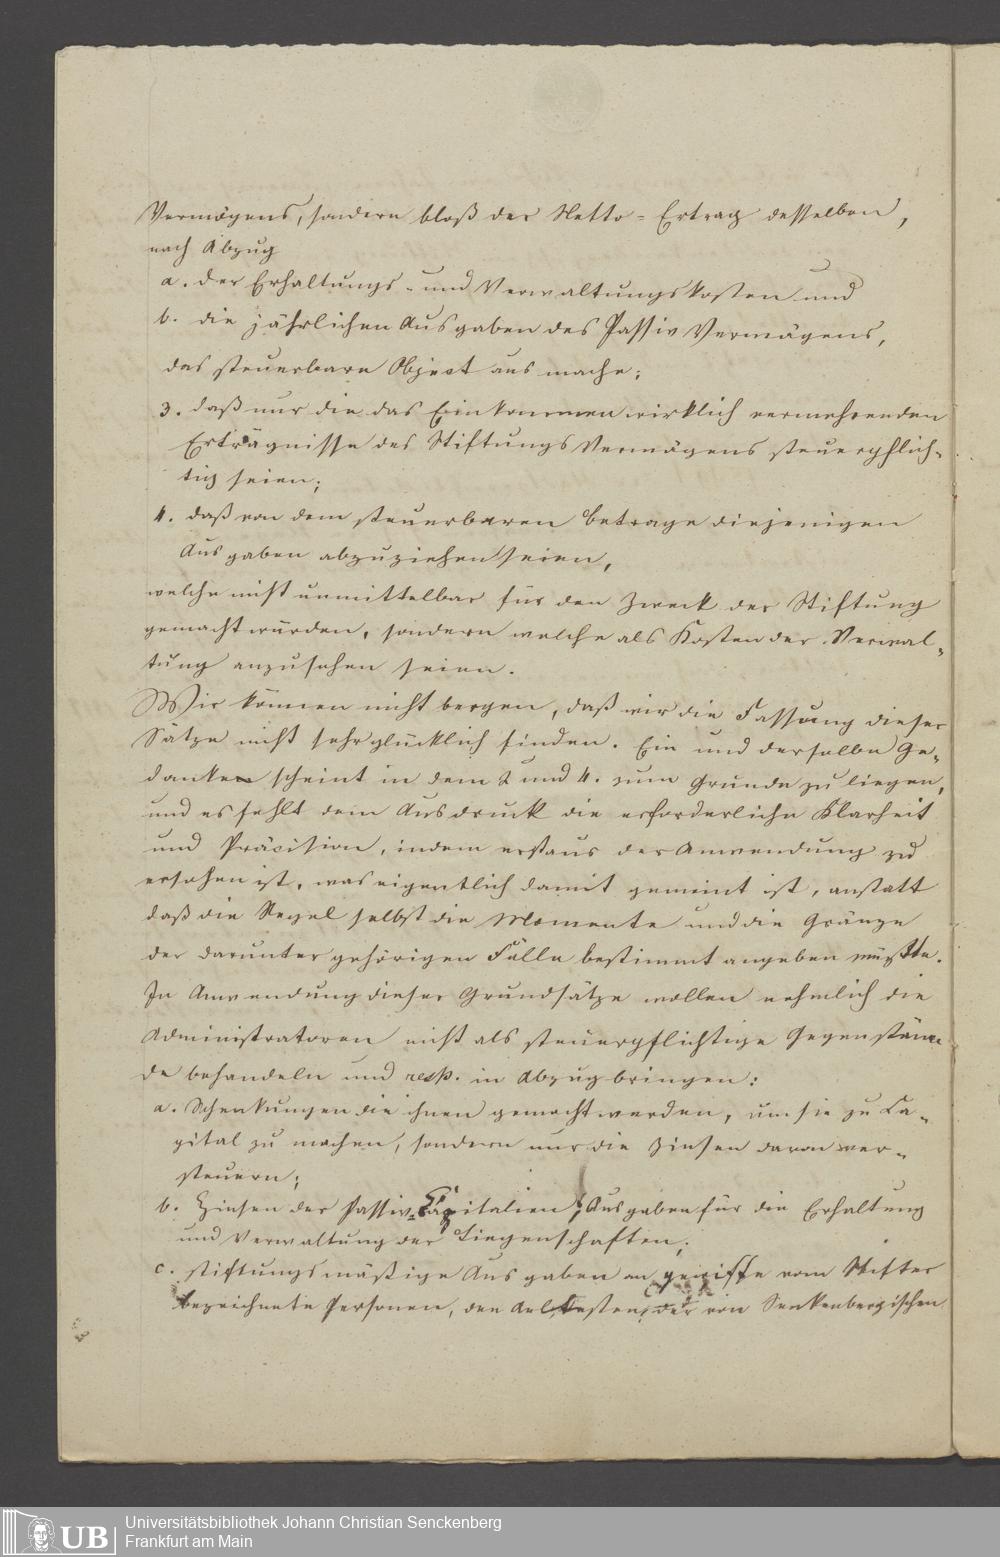 Vermögens, sondern bloß der Netto-Ertrag desselben,
nach Abzug
a. der Erhaltungs- und Verwaltungskosten und
b. die jährlichen Ausgaben des Passiv Vermögens,
das steuerbare Object ausmache;
3. daß nur die das Einkommen wirklich vermehrenden
Erträgnisse des Stiftungs Vermögens steuerpflich-
tig seien;
4. daß von dem steuerbaren Betrage diejenigen
Ausgaben abzuziehen seien,
welche nicht unmittelbar für den Zweck der Stiftung
gemacht würden, sondern welche als Kosten der Verwal-
tung anzusehen seien.
Wir können nicht bergen, daß wir die Fassung dieser
Sätze nicht sehr glücklich finden. Ein und derselbe Ge-
danke scheint in dem 2 und 4. zum Grunde zu liegen,
und es fehlt dem Ausdruck die erforderliche Klarheit
und Präcision, indem erst aus der Anwendung zu
ersehen ist, was eigentlich damit gemeint ist, anstatt
daß die Regel selbst die Momente und die Gränze
der darunter gehörigen Fälle bestimmt angeben müßte.
In Anwendung dieser Grundsätze wollen nehmlich die
Administratoren nicht als steuerpflichtige Gegenstän-
de behandeln und resp. in Abzug bringen:
a. Schenkungen die ihnen gemacht werden, um sie zu Ca-
pital zu machen, sondern nur die Zinsen davon ver-
steuern;
b. Zinsen der Passiv-Capitalien, Ausgaben für die Erhaltung
und Verwaltung der Liegenschaften;
c. stiftungsmäßige Ausgaben an gewisse vom Stifter
bezeichnete Personen, den Aeltesten der von Senkenbergischen
Universitätsbibliothek Johann Christian Senckenberg
Frankfurt am Main
UB